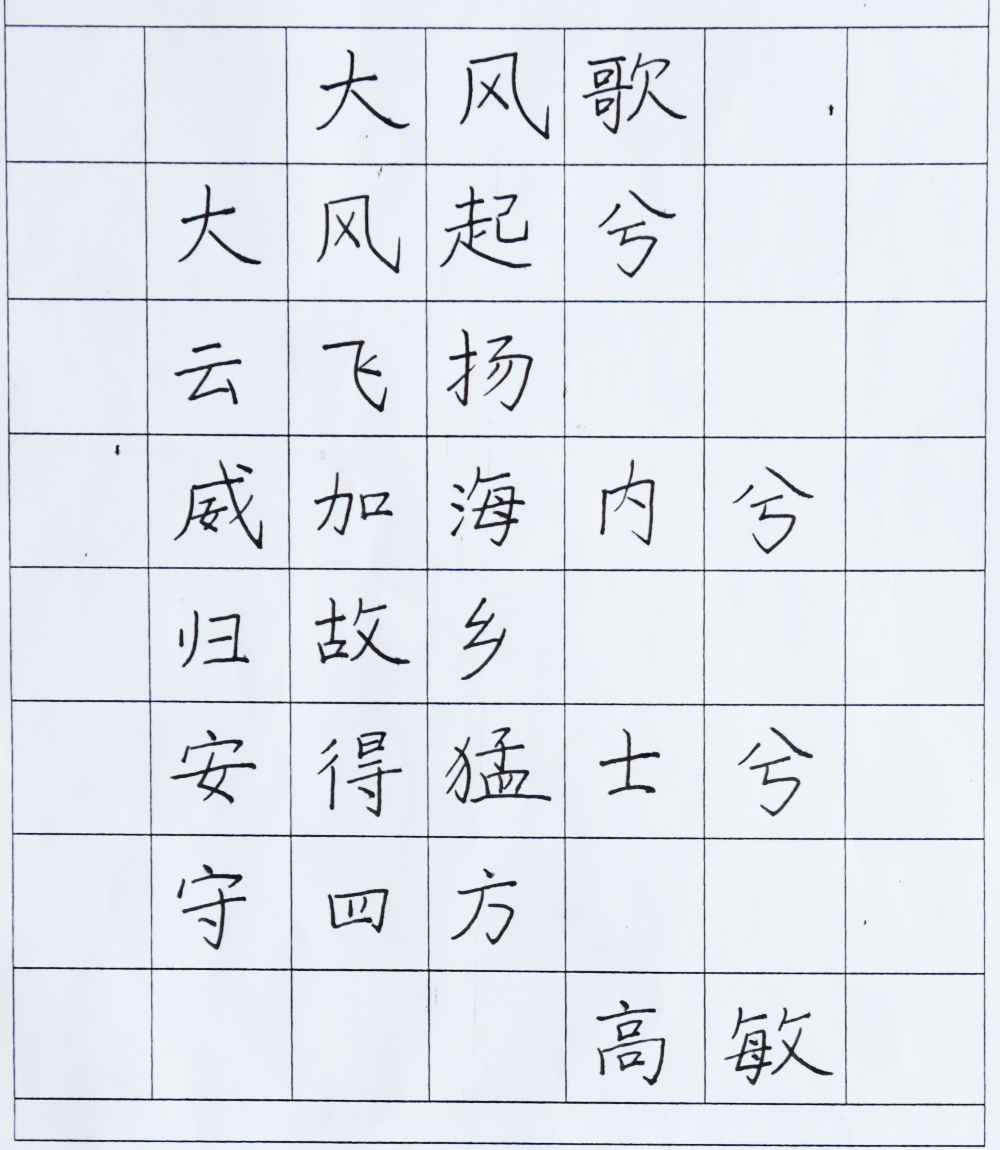 大风歌
大风起兮
云飞扬
威加海内兮
归故乡
安得猛士兮
守四方
高敏